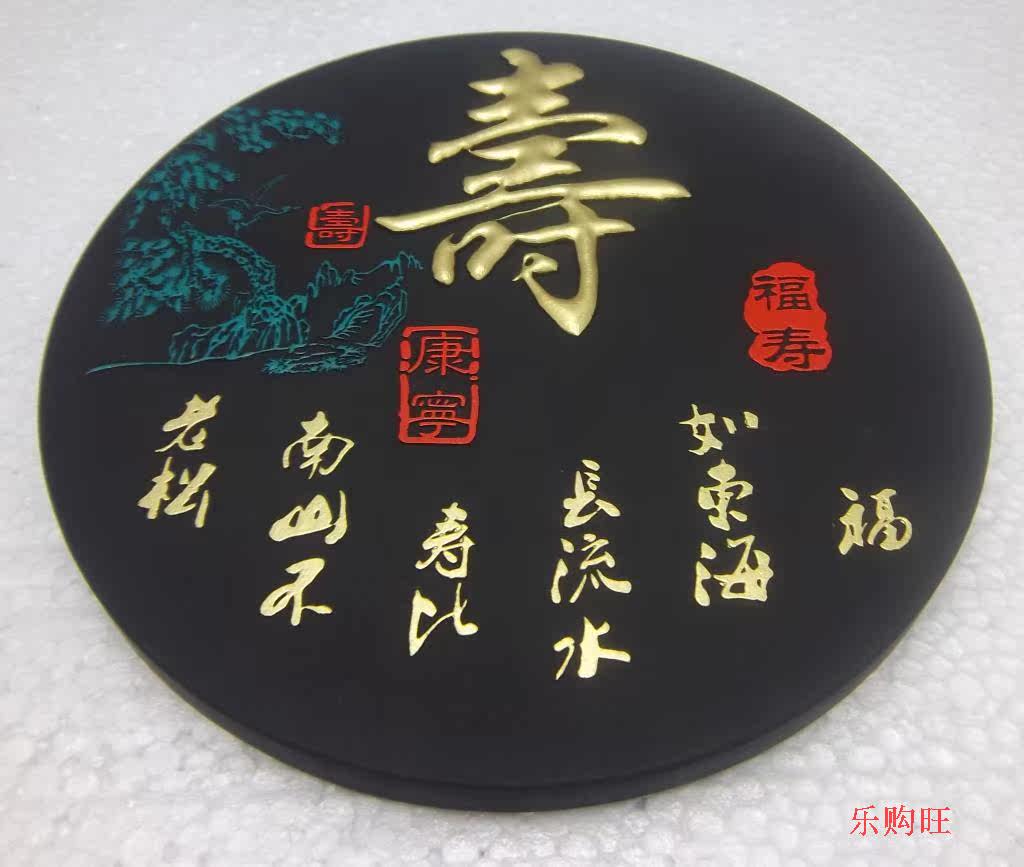 壽
壽
福寿
康寧
福
如東海
長流水
寿比
南山不
老松
乐购旺